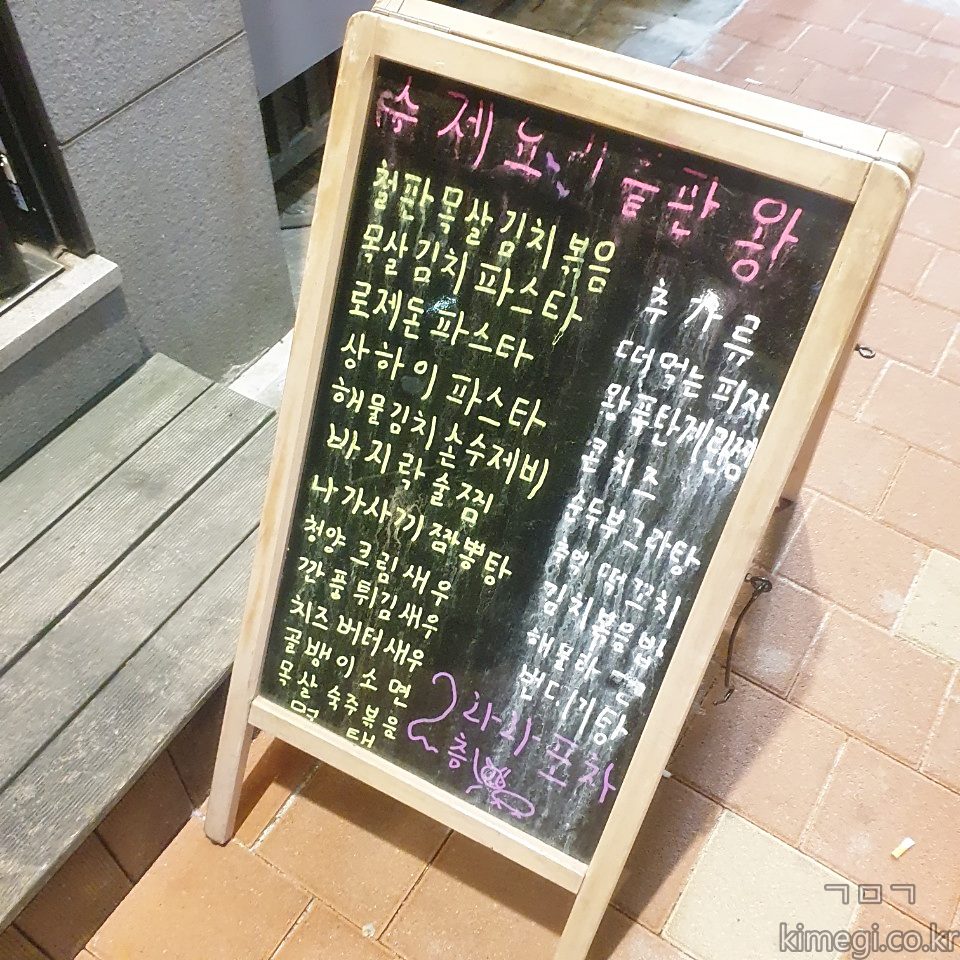 수제요리 끝판왕
철판목살김치볶음
목살김치 파스타
로제돈 파스타
상하이 파스타
해물김치 손수제비
바지락 술찜
나가사끼 짬뽕탕
청양 크림새우
깐풍 튀김새우
치즈버터새우
골뱅이소면
목살 숙주볶음
추가류
떠먹는 피자
콘치즈
순두부그라탕
추억 떡꼬치
김치볶음밥
해물라면
번데기탕
2층 라라포차
ㄱㅁㄱ
kimegi.co.kr